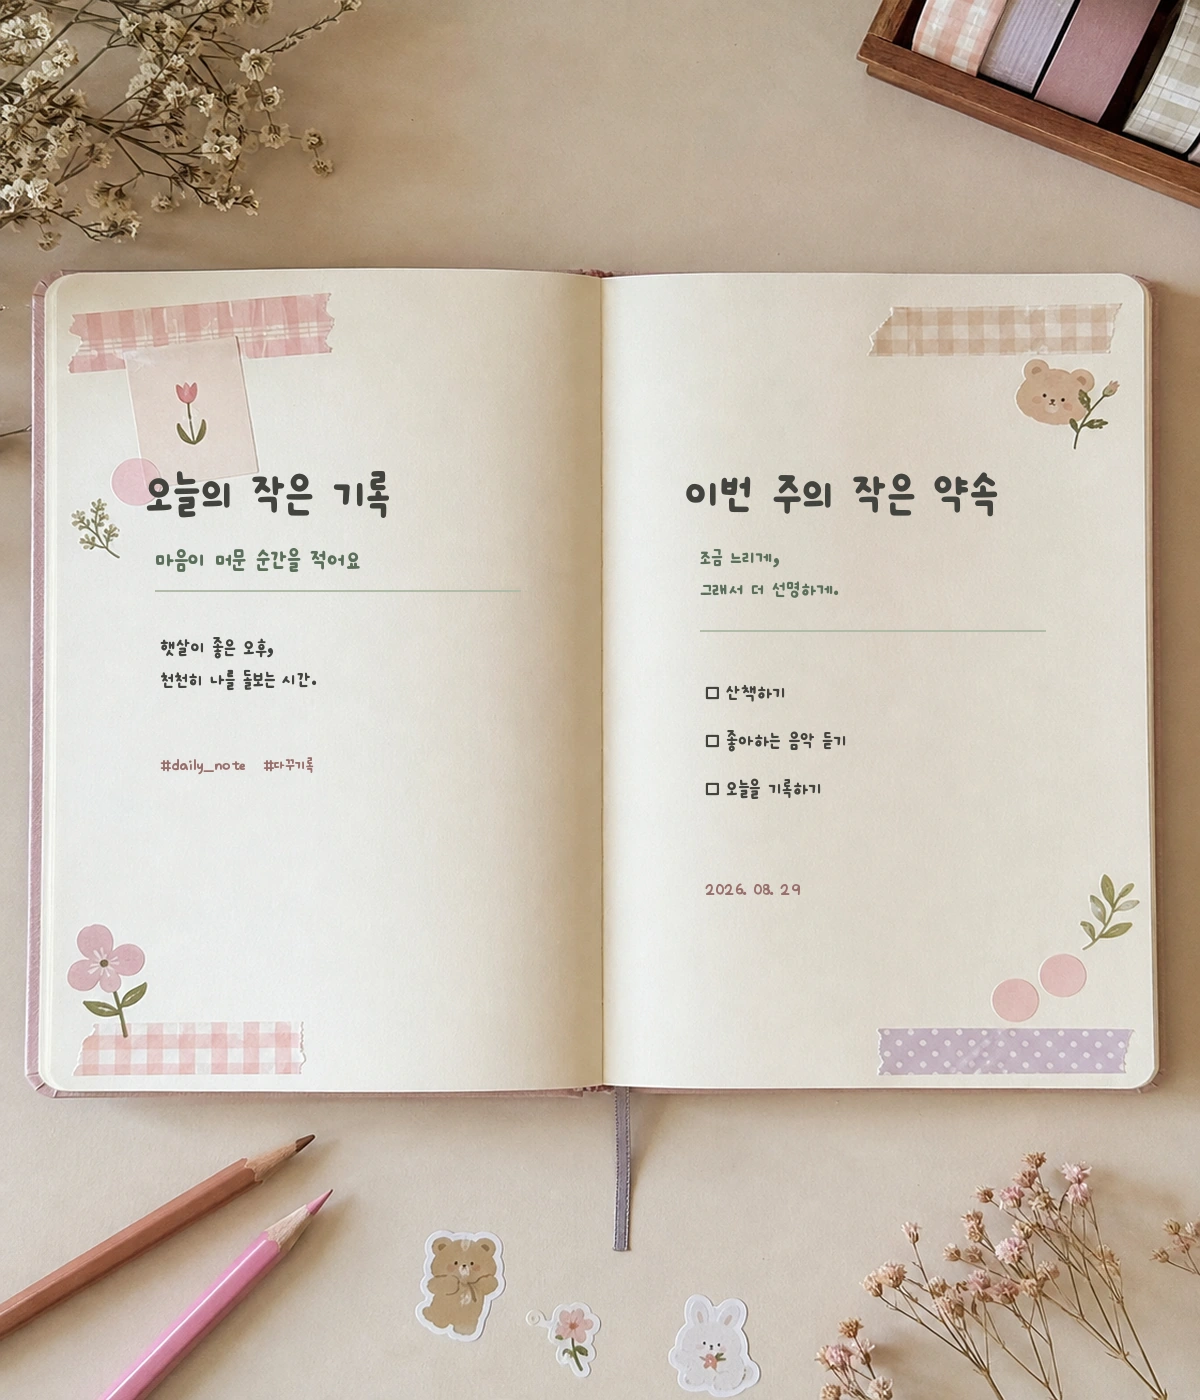 오늘의 작은 기록
마음이 머문 순간을 적어요
햇살이 좋은 오후,
천천히 나를 돌보는 시간.
#daily_note #다꾸기록
이번 주의 작은 약속
조금 느리게,
그래서 더 선명하게.
☐ 산책하기
☐ 좋아하는 음악 듣기
☐ 오늘을 기록하기
2026. 08. 29